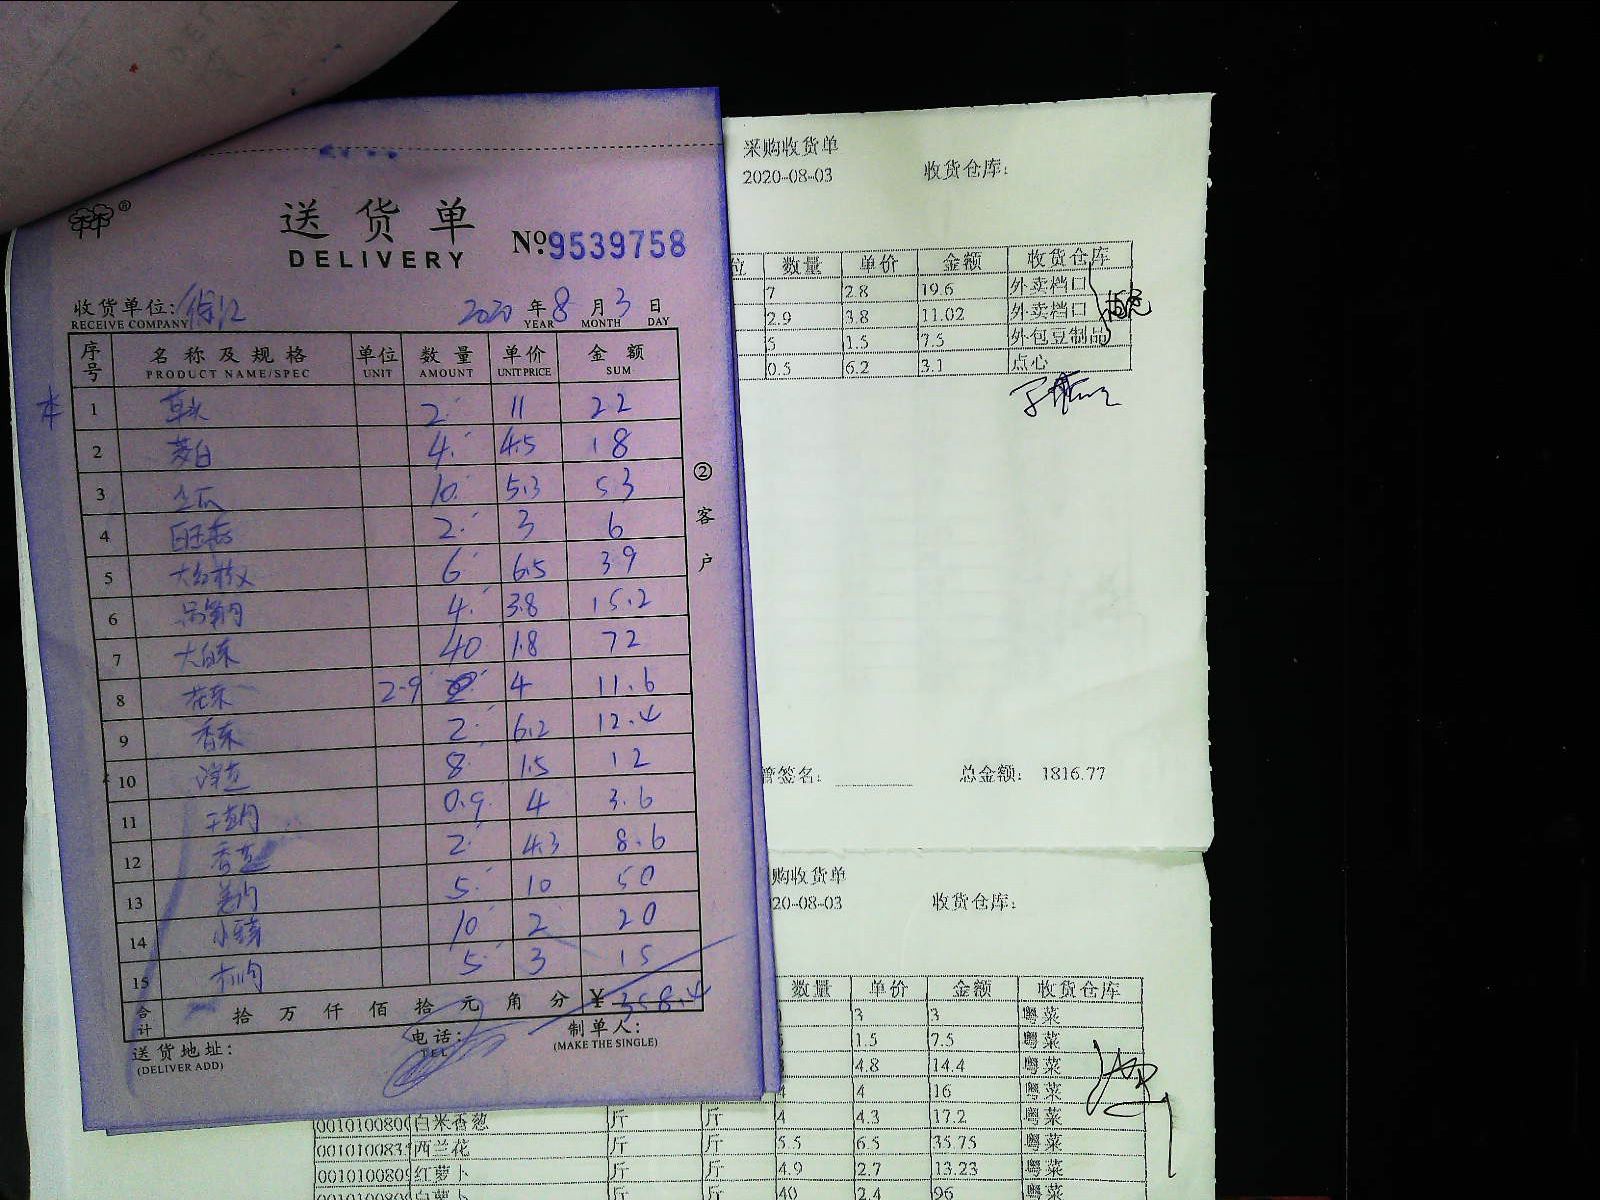 送货单
DELIVERY
№ 9539758
收货单位: 徐汇 2020 年 8 月 3 日
RECEIVE COMPANY YEAR MONTH DAY
序号 名称及规格 单位 数量 单价 金额
PRODUCT NAME/SPEC UNIT AMOUNT UNIT PRICE SUM
1 草头 2 11 22
2 茭白 4 4.5 18
3 10 5.3 53
4 2 3 6
5 大红椒 6 6.5 39
6 4 3.8 15.2
7 大白菜 40 1.8 72
8 花菜 2.9 4 11.6
9 香菜 2 6.2 12.4
10 洋葱 8 1.5 12
11 0.9 4 3.6
12 香葱 2 4.3 8.6
13 姜肉 5 10 50
14 10 2 20
15 5 3 15
合计 拾 万 仟 佰 拾 元 角 分 ¥ 358.4
送货地址:
(DELIVER ADD)
电话:
TEL
制单人:
(MAKE THE SINGLE)
② 客户
采购收货单
2020-08-03 收货仓库:
位 数量 单价 金额 收货仓库
7 2.8 19.6 外卖档口
2.9 3.8 11.02 外卖档口
5 1.5 7.5 外包豆制品
0.5 6.2 3.1 点心
管签名: 总金额: 1816.77
购收货单
20-08-03 收货仓库:
数量 单价 金额 收货仓库
3 3 粤菜
1.5 7.5 粤菜
4.8 14.4 粤菜
4 16 粤菜
00101008 白米香葱 斤 斤 4 4.3 17.2 粤菜
00101008 西兰花 斤 斤 5.5 6.5 35.75 粤菜
00101008 红萝卜 斤 斤 4.9 2.7 13.23 粤菜
00101008 白萝卜 斤 斤 40 2.4 96 粤菜